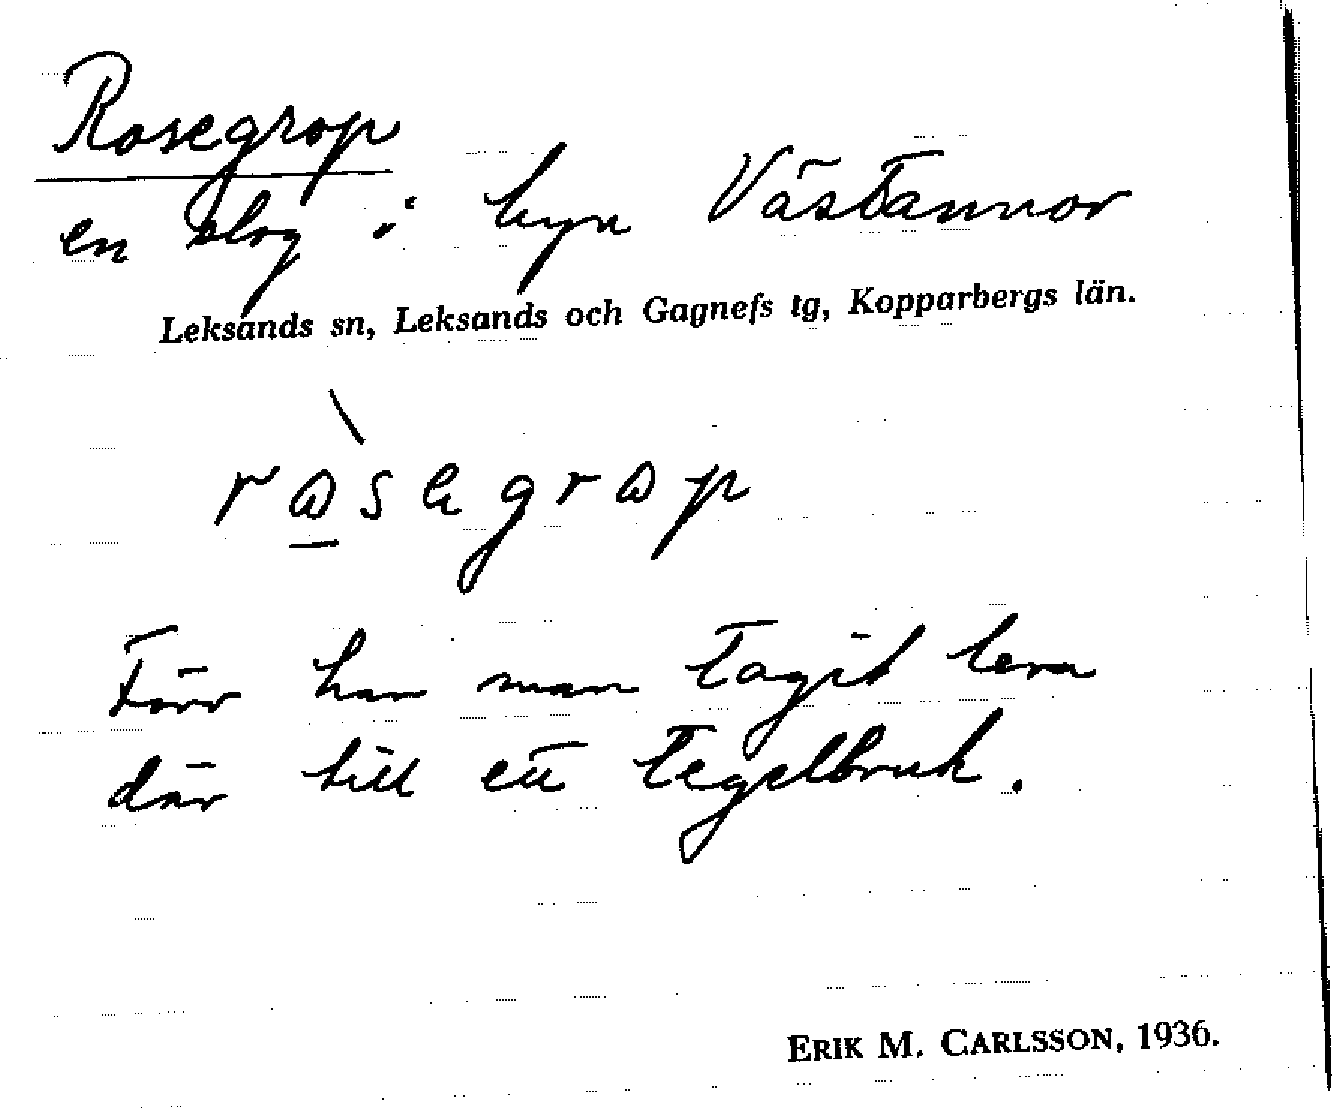 Rosegrop
en slog i byn Västannor
Leksands sn, Leksands och Gagnefs tg, Kopparbergs län.
Förr har man tagit lera
där till ett tegelbruk.
ERIK M. CARLSSON, 1936.